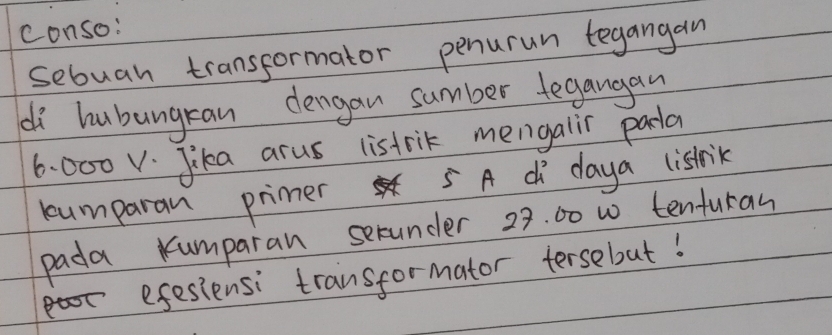 Conso:
Sebuah transformator penurun tegangan
di hubungkan dengan sumber tegangan
6.000 V. Jika arus listrik mengalir pada
kumparan primer 5 A di daya listrik
pada kumparan sekunder 27.00 W tentukan
efesiensi transformator tersebut!